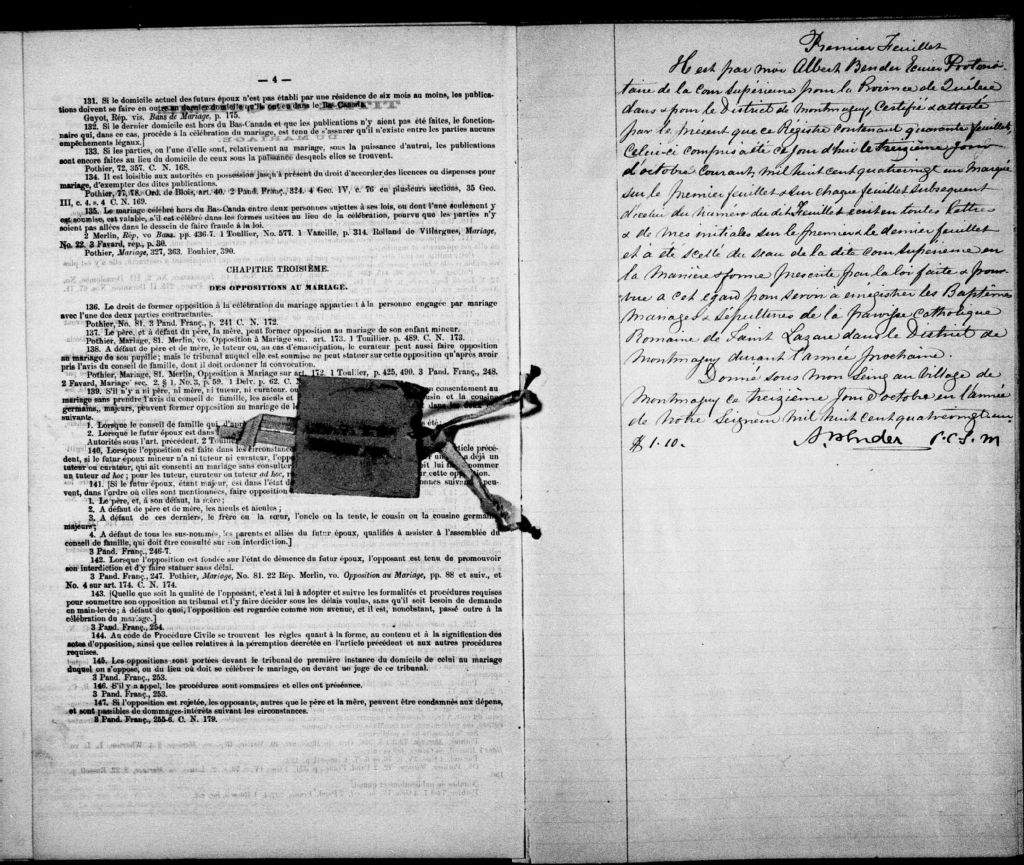 — 4 —
131. Si le domicile actuel des futurs époux n'est pas établi par une résidence de six mois au moins, les publica-
tions doivent se faire en outre au dernier domicile qu'ils ont eu dans le Bas-Canada.
Guyot, Rép. vis. Bans de Mariage, p. 175.
132. Si le dernier domicile est hors du Bas-Canada et que les publications n'y aient pas été faites, le fonction-
naire qui, dans ce cas, procède à la célébration du mariage, est tenu de s'assurer qu'il n'existe entre les parties aucun
empêchements légaux.]
133. Si les parties, ou l'une d'elle sont, relativement au mariage, sous la puissance d'autrui, les publications
sont encore faites au lieu du domicile de ceux sous la puissance desquels elles se trouvent.
Pothier, 72, 357. C. N. 168.
134. Il est loisible aux autorités en possession jusqu'à présent du droit d'accorder des licences ou dispenses pour
mariage, d'exempter des dites publications.
Pothier, 77, 78. Ord. de Blois, art. 40. 2 Pand. Franç., 324. 4 Geo. IV, c. 76 en plusieurs sections, 35 Geo.
III, c. 4. s. 4 C. N. 169.
135. Le mariage célébré hors du Bas-Canada entre deux personnes sujettes à ses lois, ou dont l'une seulement y
est soumise, est valable, s'il est célébré dans les formes usitées au lieu de la célébration, pourvu que les parties n'y
soient pas allées dans le dessein de faire fraude à la loi.
2 Merlin, Rép, vo Bans. pp. 436-7. 1 Toullier, No. 577. 1 Vazeille, p. 314. Rolland de Villargues, Mariage,
No. 22. 3 Favard, rép., p. 30.
Pothier, Mariage, 327, 363. Bouhier, 390.
CHAPITRE TROISIÈME.
DES OPPOSITIONS AU MARIAGE.
136. Le droit de former opposition à la célébration du mariage appartient à la personne engagée par mariage
avec l'une des deux parties contractantes.
Pothier, No. 81. 3 Pand. Franç., p. 241 C. N. 172.
137. Le père, et à défaut du père, la mère, peut former opposition au mariage de son enfant mineur.
Pothier, Mariage, 81. Merlin, vo. Opposition à Mariage sur. art. 173. 1 Toullier. p. 489. C. N. 173.
138. A défaut de père et de mère, le tuteur ou, au cas d'émancipation, le curateur peut aussi faire opposition
au mariage de son pupille; mais le tribunal auquel elle est soumise ne peut statuer sur cette opposition qu'après avoir
pris l'avis du conseil de famille, dont il doit ordonner la convocation.
Pothier, Mariage, 81. Merlin, Opposition à Mariage sur art. 172. 1 Toullier, p. 425, 490. 3 Pand. Franç., 248.
2 Favard, Mariage sec. 2 § 1, No. 3, p. 59. 1 Delv. p. 62. C.
139. S'il n'y a ni père, ni mère, ni tuteur, ni curateur. ou consentement au
mariage sans prendre l'avis du conseil de famille, les aïeuls et cousin et la cousine
germains, majeurs, peuvent former opposition au mariage de dans les deux
suivants.
1. Lorsque le conseil de famille qui, d'ap
2. Lorsque le futur époux est dans
Autorités sous l'art. précédent. 2 Toull
140. Lorsque l'opposition est faite dans les circonstance article précé-
dent, si le futur époux mineur n'a ni tuteur ni curateur, l' a déjà un
tuteur ou curateur, qui ait consenti au mariage sans consulter oit lui faire nommer
un tuteur ad hoc; pour les tuteur, curateur ou tuteur ad hoc, r cette opposition.
141. [Si le futur époux, étant majeur, est dans l'état d nnes suivantes peu-
vent, dans l'ordre où elles sont mentionnées, faire opposition
1. Le père, et, à son défaut, la mère;
2. A défaut de père et de mère, les aïeuls et aïeules;
3. A défaut de ces derniers, le frère ou la sœur, l'oncle ou la tente, le cousin ou la cousine germains,
majeurs;
4. A défaut de tous les sus-nommés, les parents et alliés du futur époux, qualifiés à assister à l'assemblée du
conseil de famille, qui doit être consulté sur son interdiction.]
3 Pand. Franç., 246-7.
142. Lorsque l'opposition est fondée sur l'état de démence du futur époux, l'opposant est tenu de promouvoir
son interdiction et d'y faire statuer sans délai.
3 Pand. Franç., 247. Pothier, Mariage, No. 81. 22 Rép. Merlin, vo. Opposition au Mariage, pp. 88 et suiv., et
No. 4 sur art. 174. C. N. 174.
143. [Quelle que soit la qualité de l'opposant, c'est à lui à adopter et suivre les formalités et procédures requises
pour soumettre son opposition au tribunal et l'y faire décider sous les délais voulus, sans qu'il soit besoin de demande
en main-levée; à défaut de quoi, l'opposition est regardée comme non avenue, et il est, nonobstant, passé outre à la
célébration du mariage.]
3 Pand. Franç., 254.
144. Au code de Procédure Civile se trouvent les règles quant à la forme, au contenu et à la signification des
actes d'opposition, ainsi que celles relatives à la péremption décrétée en l'article précédent et aux autres procédures
requises.
145. Les oppositions sont portées devant le tribunal de première instance du domicile de celui au mariage
duquel on s'oppose, ou du lieu où doit se célébrer le mariage, ou devant un juge de ce tribunal.
3 Pand. Franç., 253.
146. S'il y a appel, les procédures sont sommaires et elles ont préséance.
3 Pand. Franç., 253.
147. Si l'opposition est rejetée, les opposants, autres que le père et la mère, peuvent être condamnés aux dépens,
et sont passibles de dommages-intérêts suivant les circonstances.
3 Pand. Franç., 255-6. C. N. 179.
Premier Feuillet
Il est par moi Albert Bender Ecuier Protono
taire de la Cour Supérieure pour la Province de Québec
dans & pour le District de Montmagny, Certifié & attesté
par le présent que ce Régistre contenant quarante feuillets
Celui-ci compris a été ce jour d'hui le treizième Jour
d'octobre courant, mil huit cent quatre vingt un Marqué
sur le premier feuillet & sur chaque feuillet subsequent
d'icelui du numéro du dit Feuillet écrit en toutes lettres
& de mes initiales sur le premier & le dernier feuillet
et a été scellé du sceau de la dite cour supérieure en
la Manière & forme prescrite par la loi faite & pour-
vue a cet egard pour servir a enrégistrer les Baptêmes
Mariages & Sépultures de la paroisse Catholique
Romaine de Saint Lazare dans le District de
Montmagny durant l'année prochaine.
Donné sous mon Seing au Village de
Montmagny ce treizième Jour d'octobre en l'année
de notre Seigneur Mil huit cent quatre vingt un
$1.10. A Bender P.C.S.M